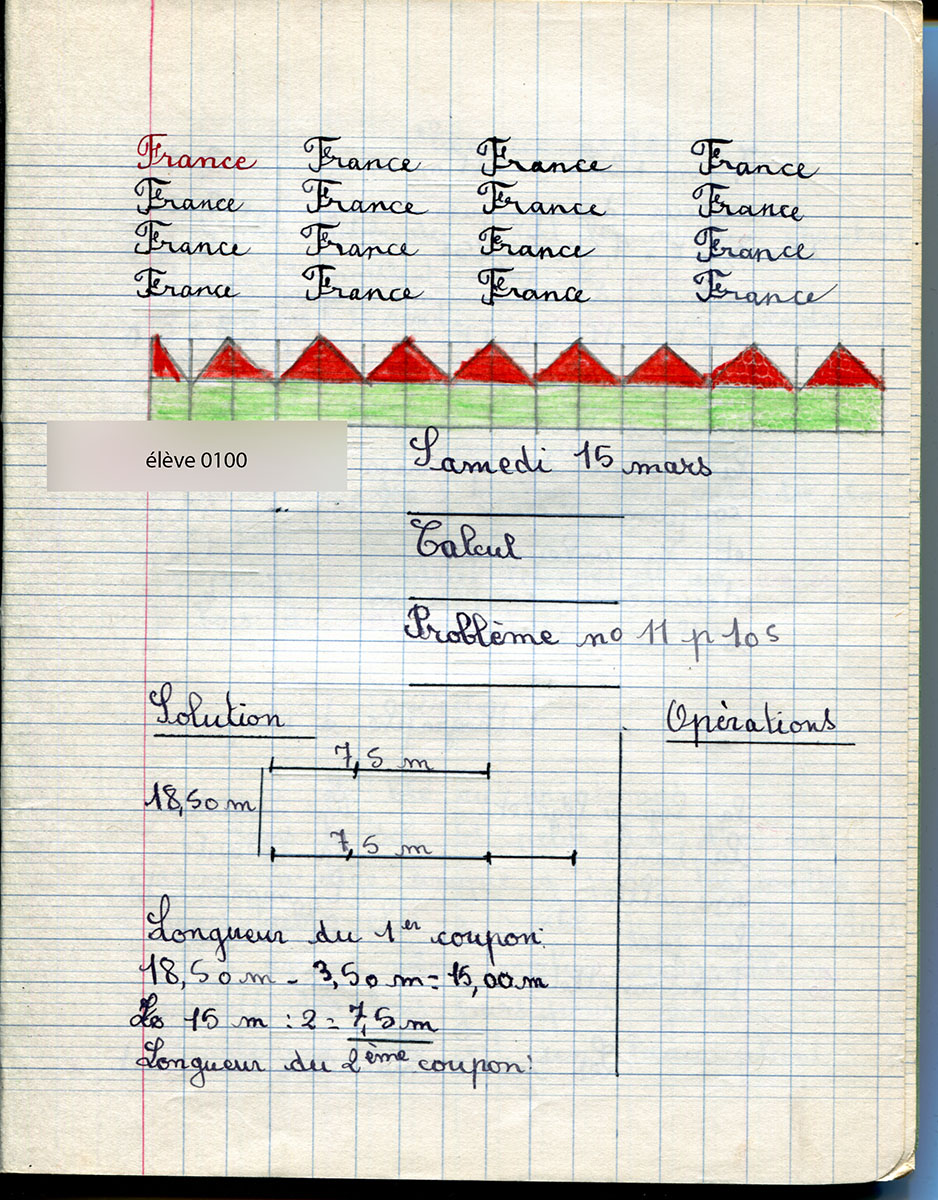 France France France France
France France France France
France France France France
France France France France
élève 0100
Samedi 15 mars
Calcul
Problème no 11 p 105
Solution
Opérations
7,5 m
18,50 m
7,5 m
Longueur du 1er coupon:
18,50 m - 3,50 m = 15,00 m
15 m : 2 = 7,5 m
Longueur du 2ème coupon: